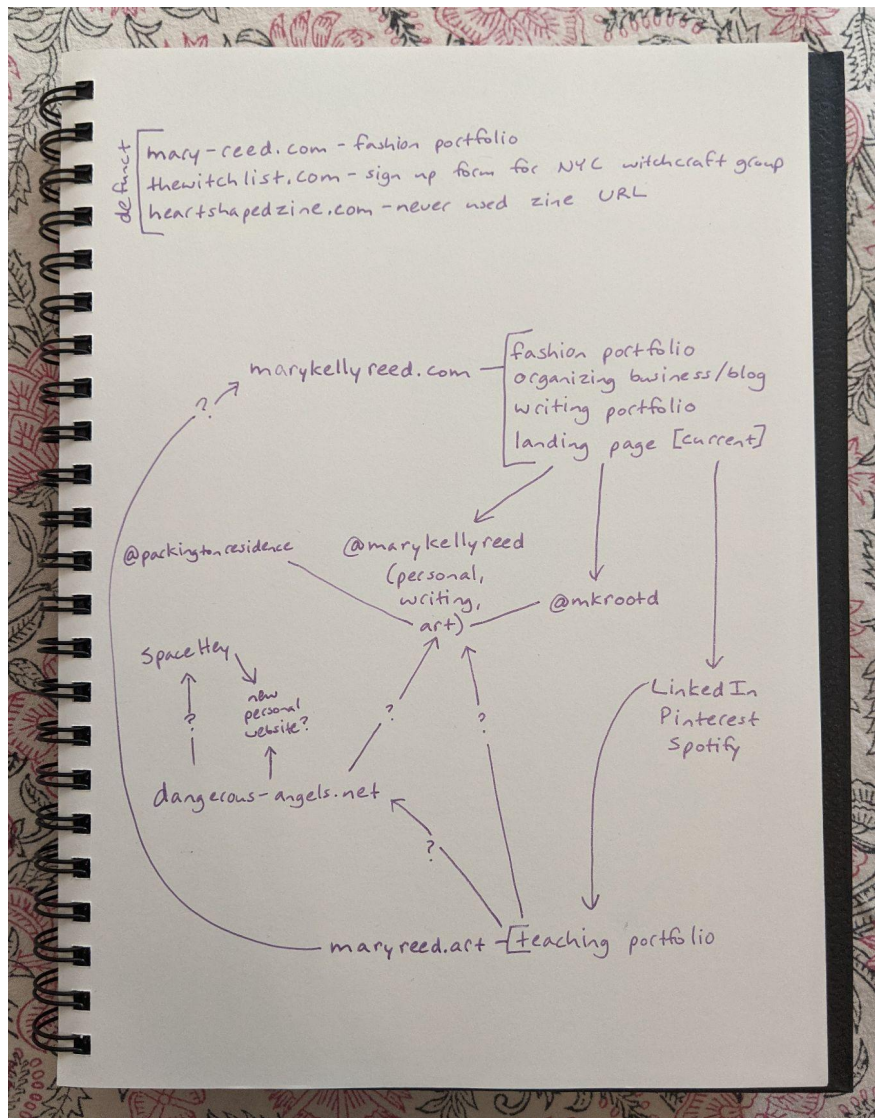 defunct
mary-reed.com - fashion portfolio
thewitchlist.com - sign up form for NYC witchcraft group
heartshapedzine.com - never used zine URL
marykellyreed.com
fashion portfolio
organizing business/blog
writing portfolio
landing page [current]
?
@packingtonresidence
@marykellyreed
(personal,
writing,
art)
@mkrootd
SpaceHey
new
personal
website?
?
?
?
LinkedIn
Pinterest
Spotify
dangerous-angels.net
?
maryreed.art - [teaching portfolio